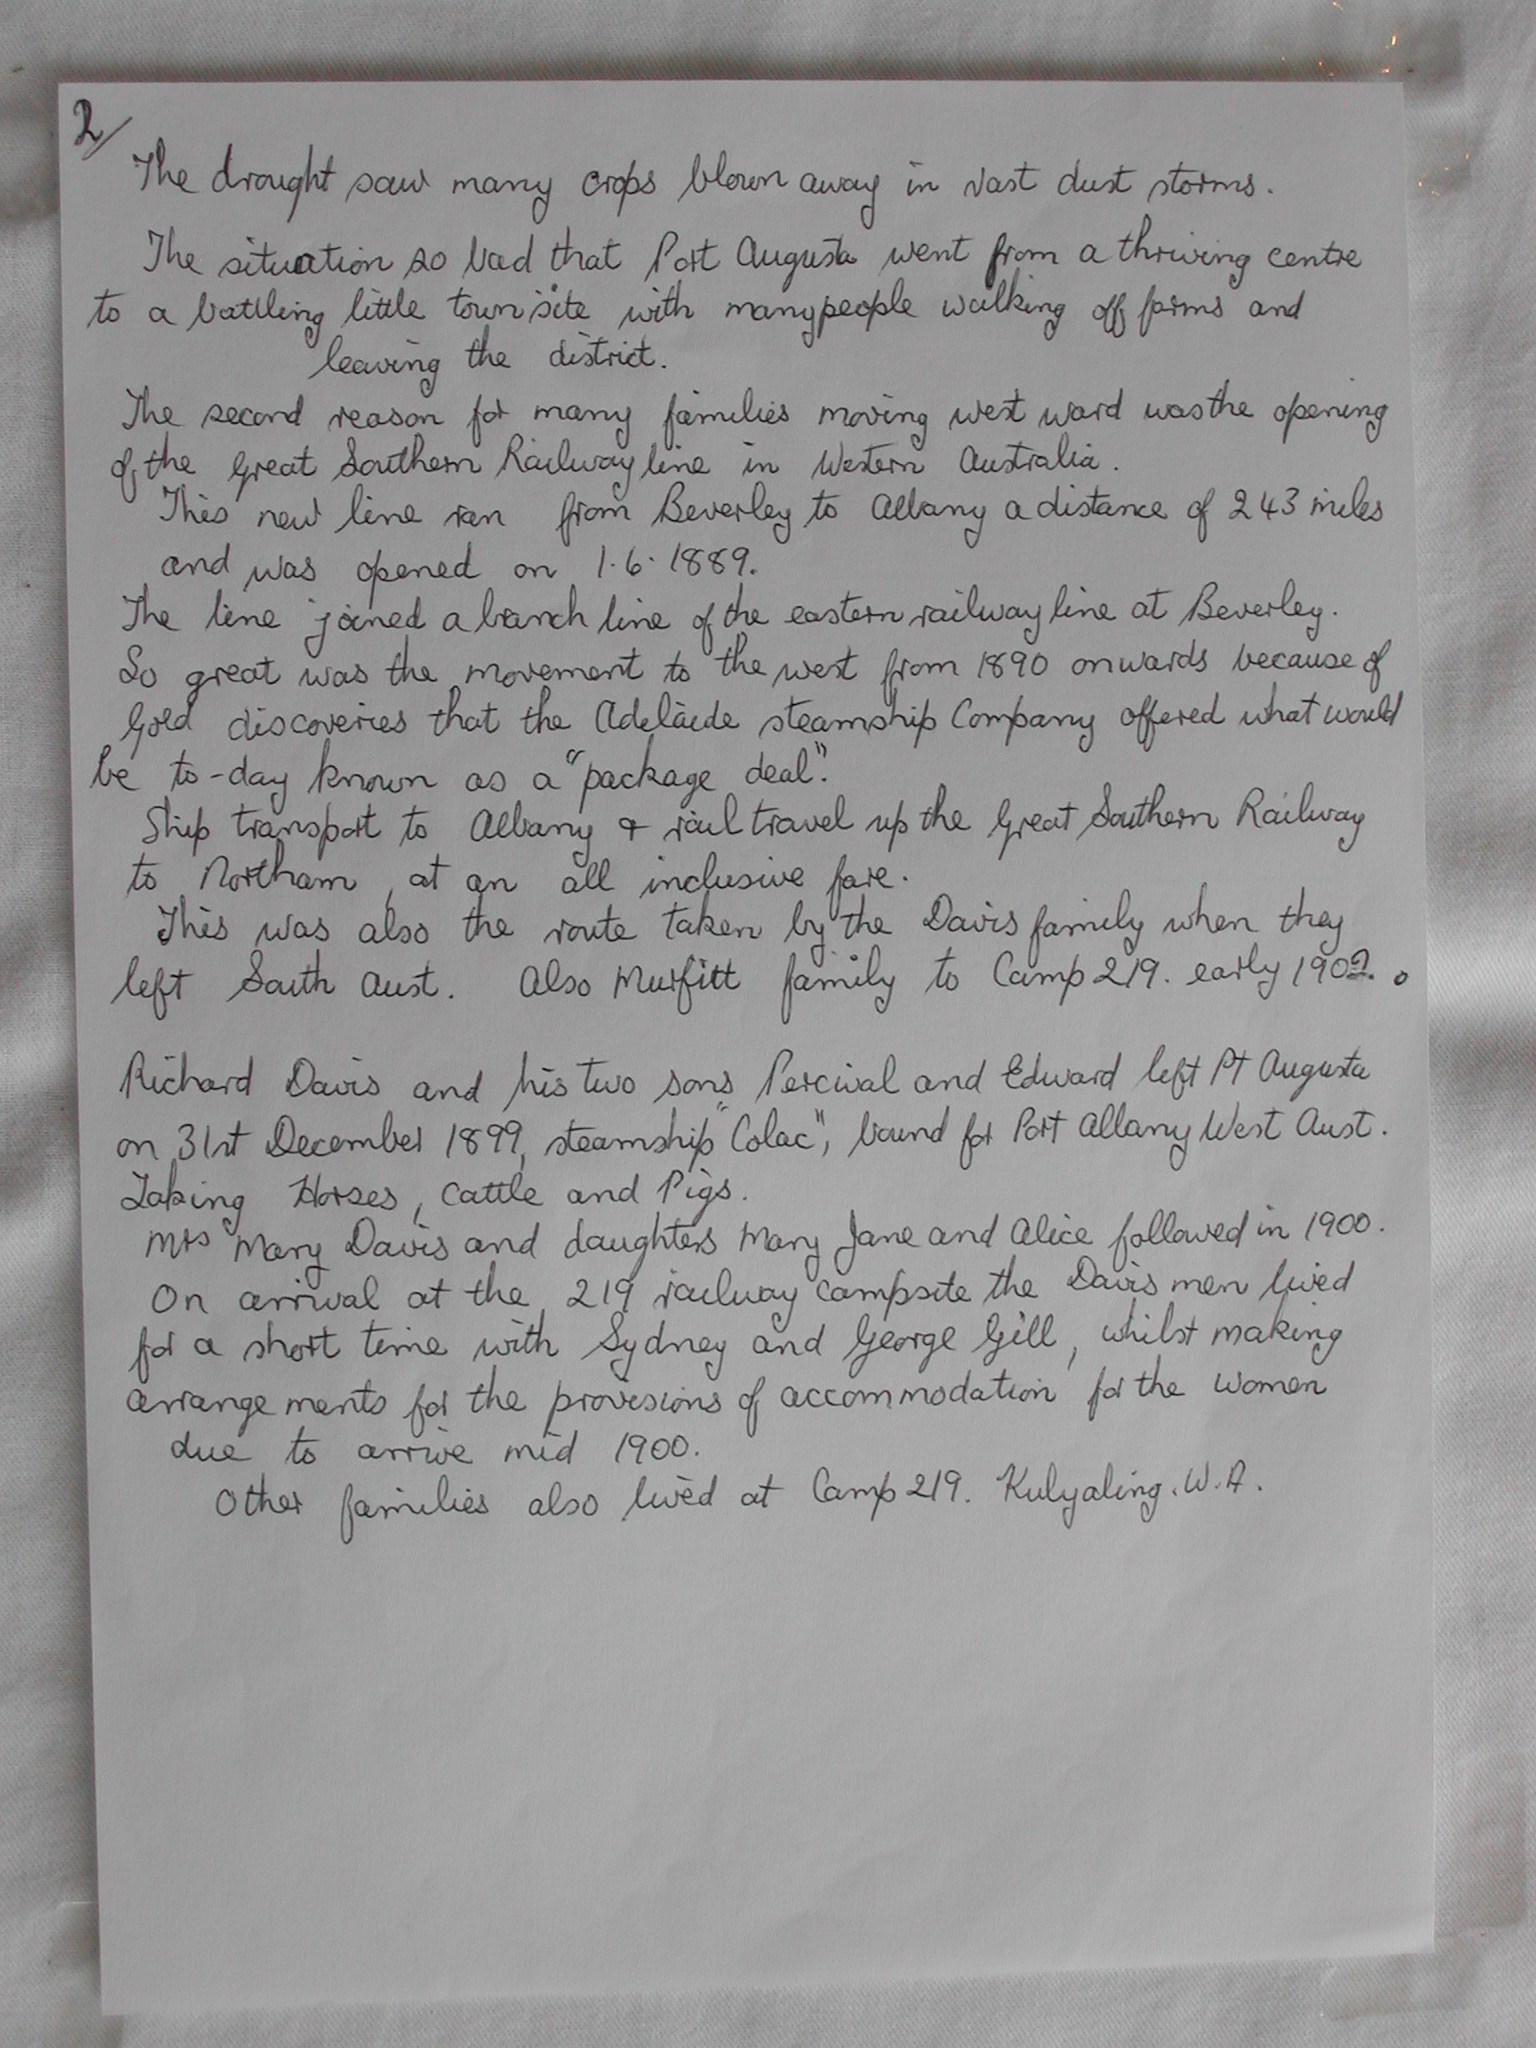 2/
The drought saw many crops blown away in vast dust storms.
The situation so bad that Port Augusta went from a thriving centre
to a battling little town site with many people walking off farms and
leaving the district.
The second reason for many families moving west ward was the opening
of the Great Southern Railway line in Western Australia.
This new line ran from Beverley to Albany a distance of 243 miles
and was opened on 1.6.1889.
The line joined a branch line of the eastern railway line at Beverley.
So great was the movement to the west from 1890 onwards because of
Gold discoveries that the Adelaide steamship Company offered what would
be to-day known as a "package deal".
Ship transport to Albany & rail travel up the Great Southern Railway
to Northam, at an all inclusive fare.
This was also the route taken by the Davis family when they
left South Aust. Also Murfitt family to Camp 219. early 1902.
Richard Davis and his two sons Percival and Edward left Pt Augusta
on 31st December 1899, steamship "Colac", bound for Port Albany West Aust.
Taking Horses, Cattle and Pigs.
Mrs Mary Davis and daughters Mary Jane and Alice followed in 1900.
On arrival at the 219 railway campsite the Davis men lived
for a short time with Sydney and George Gill, whilst making
arrangements for the provisions of accommodation for the women
due to arrive mid 1900.
Other families also lived at Camp 219. Kulyaling. W.A.